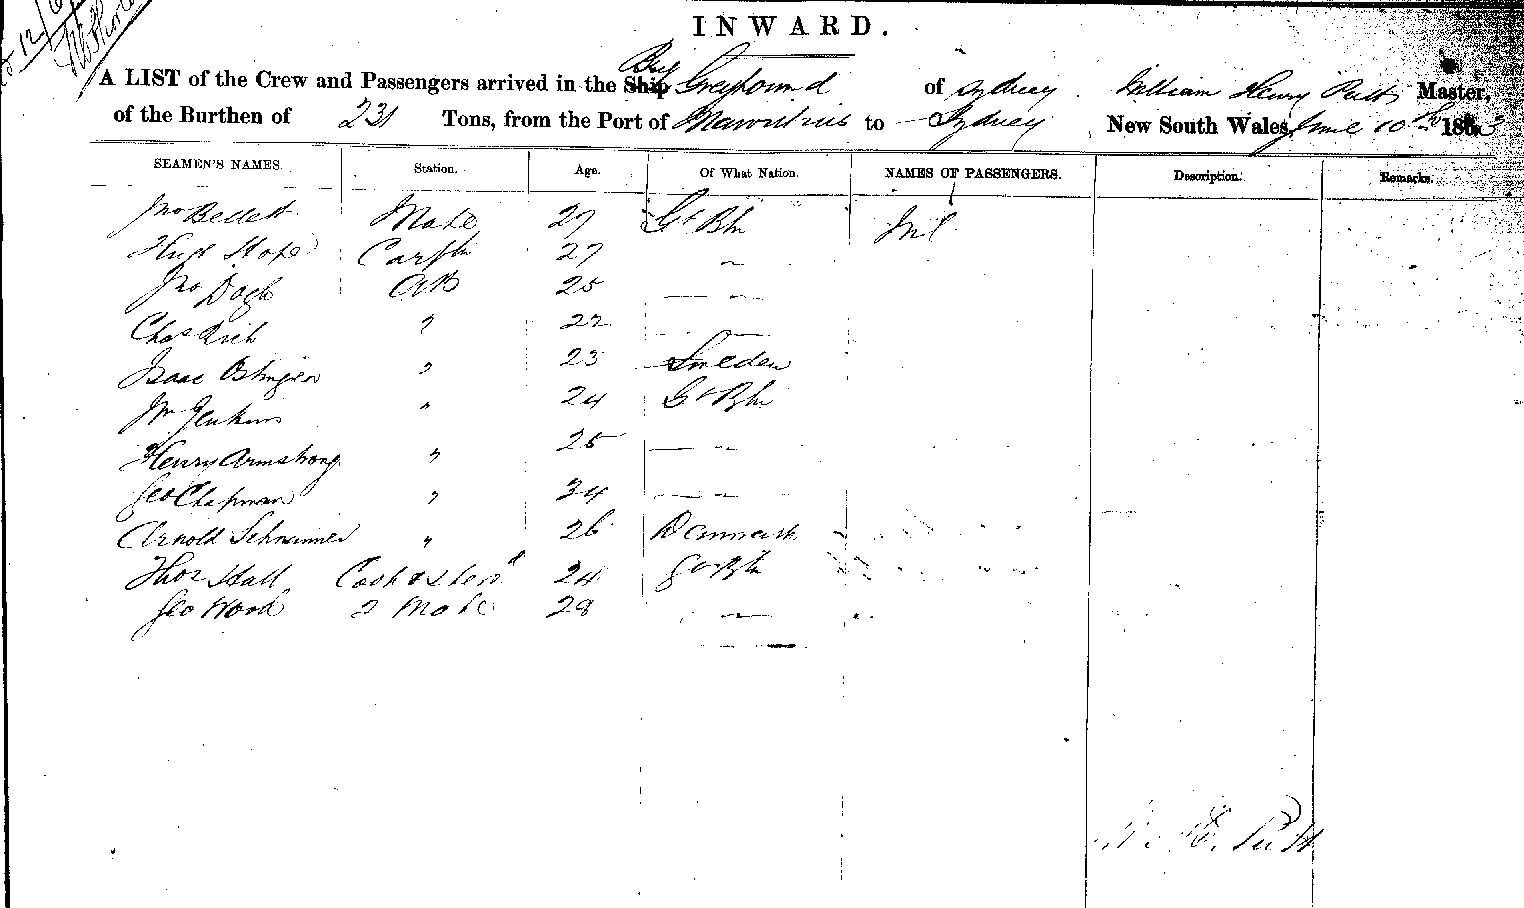 INWARD.
A LIST of the Crew and Passengers arrived in the Ship Brig Greyhound of Sydney William Henry Pitt Master,
of the Burthen of 231 Tons, from the Port of Mauritius to Sydney New South Wales, June 10th 1863
SEAMEN'S NAMES. Station. Age. Of What Nation. NAMES OF PASSENGERS. Description. Remarks.
Jno Bellett Mate 27 Gt Btn Nil
Hugh Hope Carptr 27 "
Jno AB 25 — "
Chas Rich " 22 "
Isaac " 23 Sweden
Wm Jenkins " 24 Gt Btn
Henry Armstrong " 25 — "
Geo Chapman " 34 — "
Arnold " 26 Denmark
Thos Hall Cook & Stewd 24 Gt Btn
Geo Wood 2 Mate 28 "
W. H. Pitt